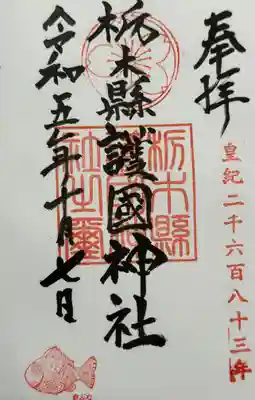 奉拝
皇紀二千六百八十三年
栃木縣護國神社
栃木縣護國神社之璽
令和五年十月七日